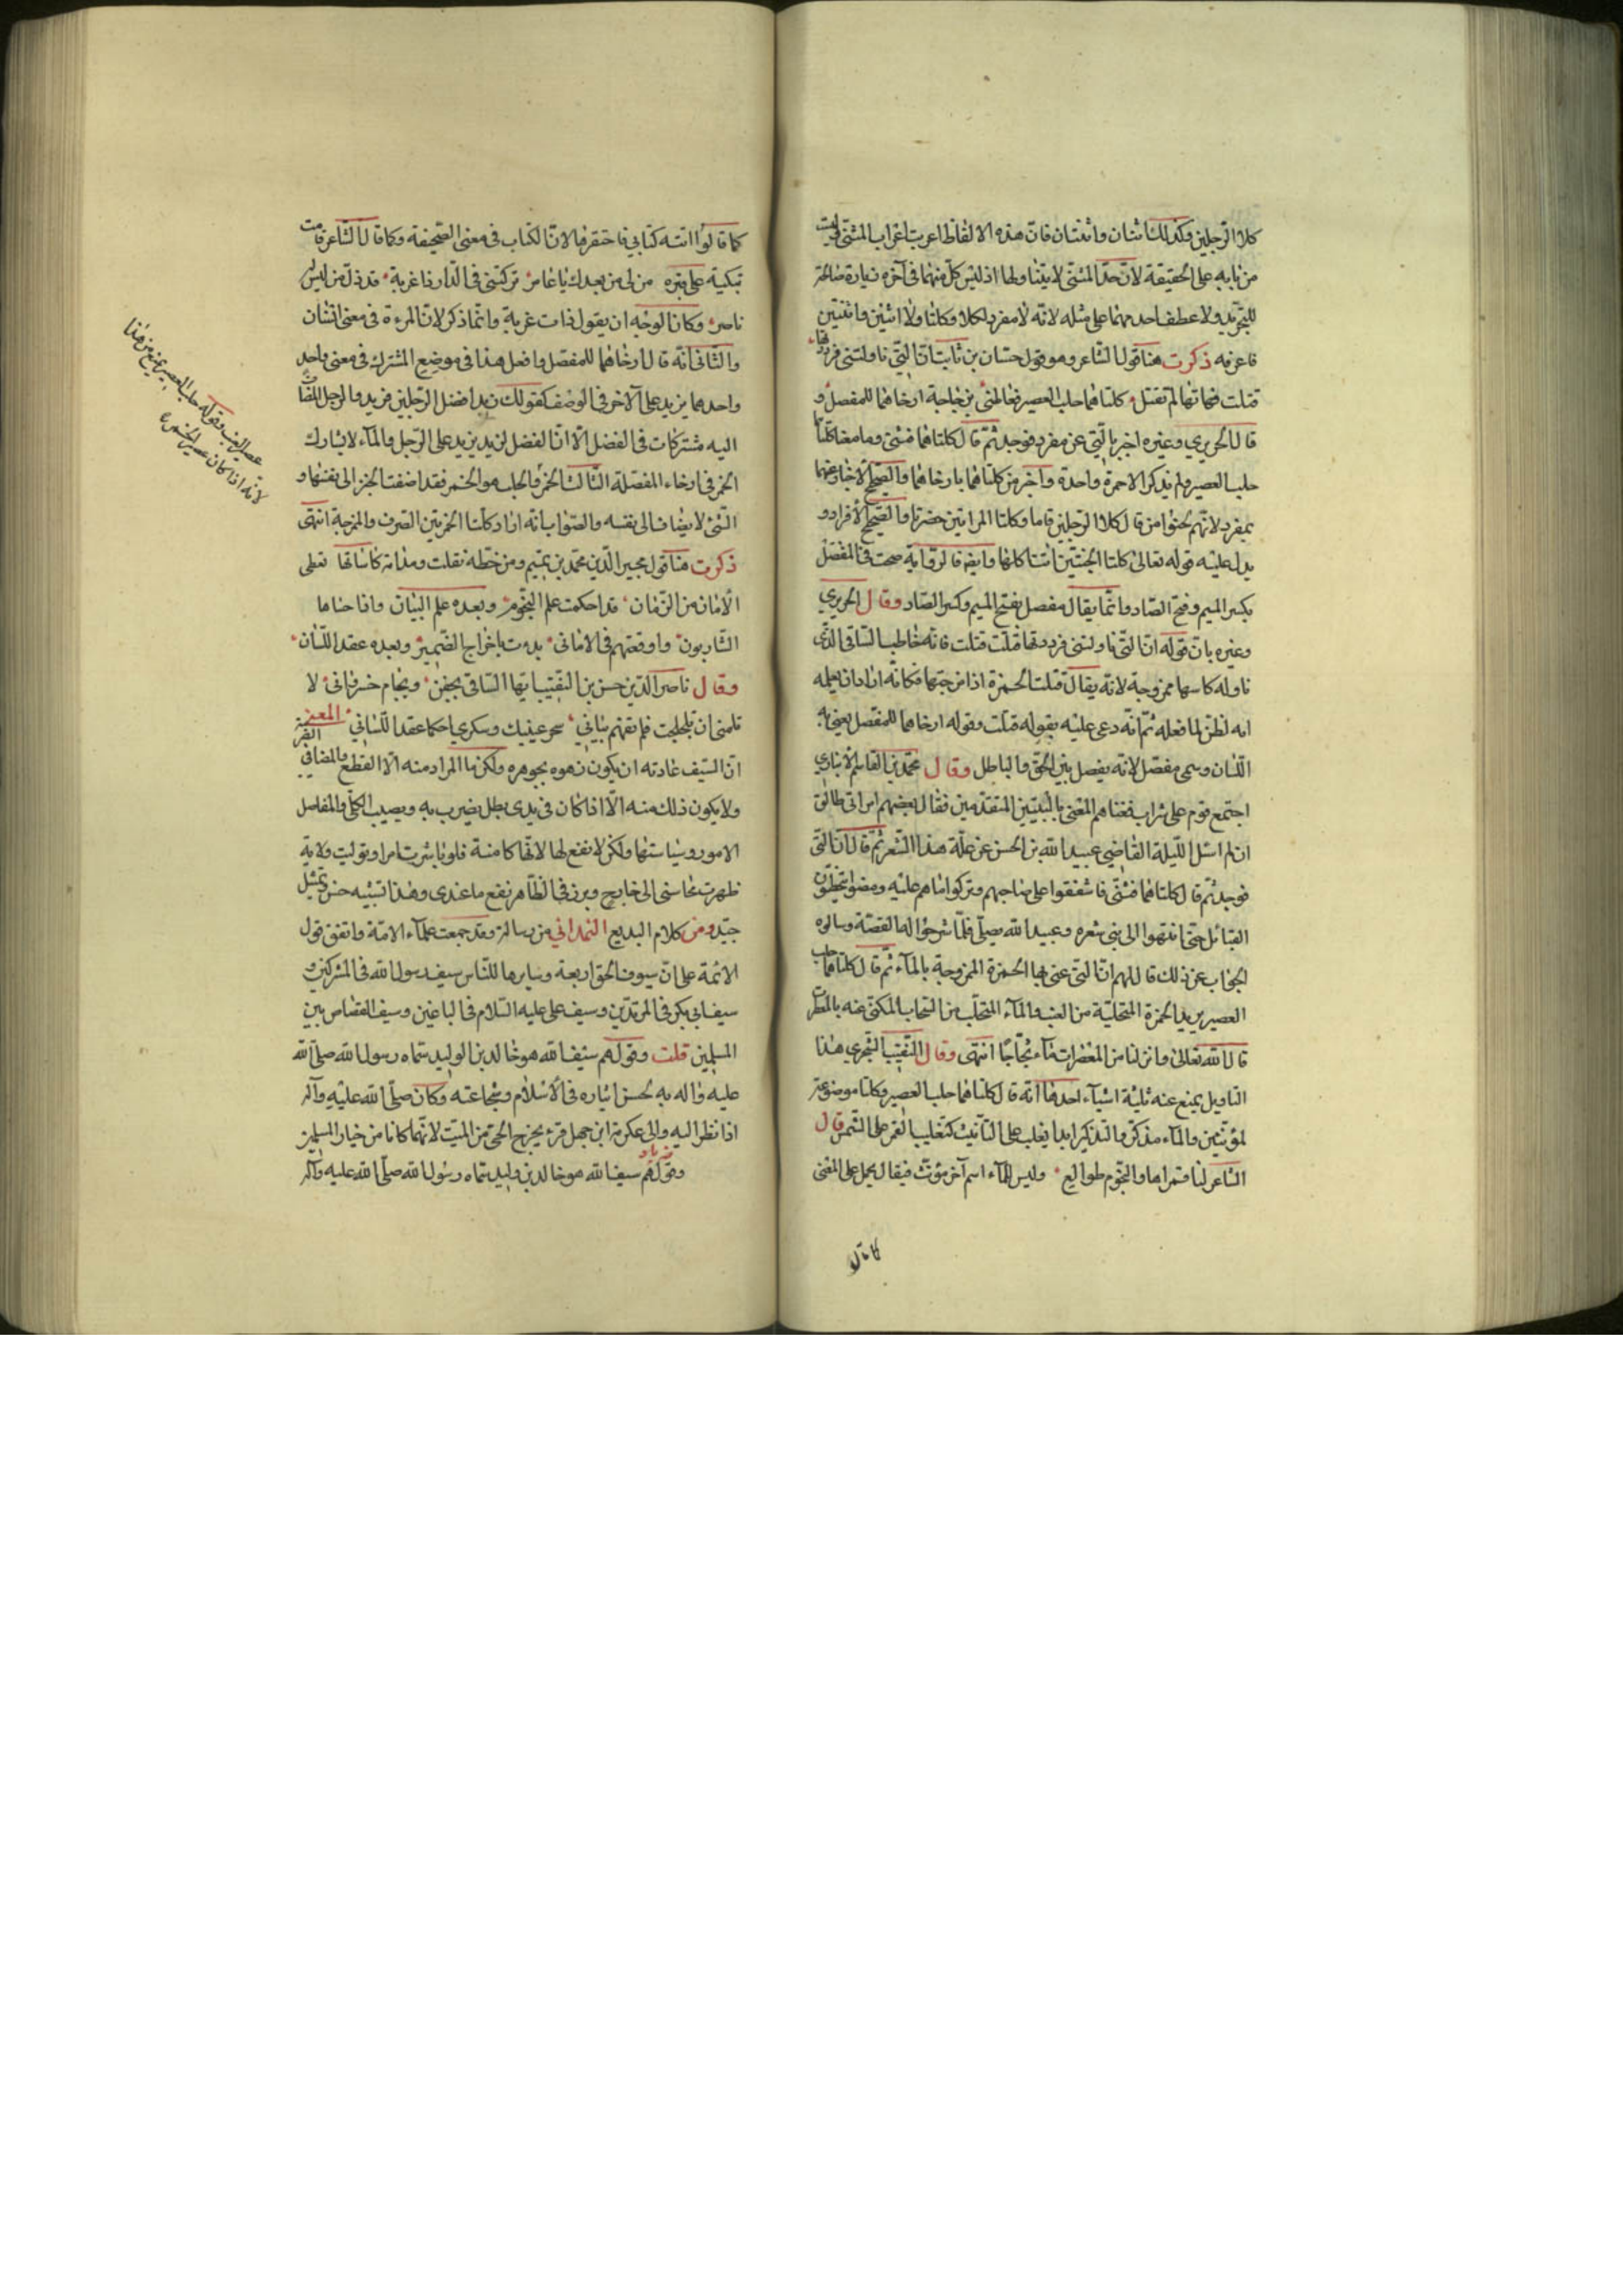 كلا الرجلين وكذلك اثنان واثنتان فان هذه الالفاظ اعربت اعراب المثنى وليست
من بابه على الحقيقة لان حد المثنى لا يتناولها اذ ليس كل منهما في آخره زيادة صالحة
للتجريد ولا عطف احدهما على مثله لانه لا مفرد لكلا وكلتا ولا اثنين واثنتين
فاعرفه ذكرت هنا قول الشاعر وهو قول حسان بن ثابت ان التي ناولتني فرددتها
قتلت قتلت فهاتها لم تقتل كلتاهما حلب العصير فعاطني بزجاجة ارخاهما للمفصل
قال الحريري وغيره اخبر بالتي عن مفرد فوجد ثم قال كلتاهما فثنى وما معنا كلتا
حلب العصير ولم يذكر الا حمرة واحدة وآخر من كلتاهما بارخاهما والصحيح الاخبار عنهما
بمفرد لانهم لحنوا من قال كلا الرجلين قاما وكلتا المراتين حضرتا والصحيح الافراد و
يدل عليه قوله تعالى كلتا الجنتين آتت اكلها وايضا فالرواية صحت في المفصل
بكسر الميم وفتح الصاد وانما يقال مفصل بفتح الميم وكسر الصاد وقال الحريري
وغيره بان قوله ان التي ناولتني فرددتها قتلت قتلت فانه خاطب الساقي الذي
ناوله كاسها ممزوجة لانه يقال قتلت الخمرة اذا مزجتها فكانه اراد ان يعلمه
انه لفطن لما فعله ثم انه دعى عليه بقوله قتلت وقوله ارخاهما للمفصل يعني به
اللسان وسمي مفصل لانه يفصل بين الحق والباطل وقال محمد بن القاسم الانباري
اجتمع قوم على شراب فغناهم المغني بالبيتين المتقدمين فقال بعضهم امراتي طالق
ان لم اسئل الليلة القاضي عبيد الله بن الحسن عن علة هذا الشعر ثم قال ان التي
فوجد ثم قال كلتاهما فثنى فاشفقوا على صاحبهم وتركوا ما هم عليه ومضوا يتخطون
القبائل حتى انتهوا الى بني شعره وعبيد الله يصلي فلما شرحوا له القصة وسالوه
الجواب عن ذلك قال لهم ان التي عنى بها الخمرة الممزوجة بالماء ثم قال كلتاهما حلب
العصير يريد الخمرة المتحلبة من العنب والماء المتحلب من السحاب المكنى عنه بالمعصرات
قال الله تعالى وانزلنا من المعصرات ماء ثجاجا انتهى وقال النقيب الشجري هذا
التاويل يمنع عنه ثلثة اشياء احدها انه قال كلتاهما حلب العصير وكلتا موضوعة
لمؤنثين والماء مذكر والتذكير ابدا يغلب على التانيث كتغليب القمر على الشمس قال
الشاعر لنا قمراها والنجوم طوالع وليس للماء اسم آخر مؤنث فيقال يحمل على المعنى
كما قالوا
كما قالوا اتته كتابي فاحتقرها لان الكتاب في معنى الصحيفة وكما قال الشاعر قامت
تبكيه على قبره من لي من بعدك يا عامر تركتني في الدار ذا غربة قد ذل من ليس له
ناصر وكان الوجه ان يقول ذات غربة وانما ذكر لان المرءة في معنى انسان
والثاني انه قال ارخاهما للمفصل وافعل هذا في موضع المشترك في معنى واحد
واحدهما يزيد على الآخر في الوصف كقولك زيد افضل الرجلين فزيد والرجل المضاف
اليه مشتركان في الفضل الا ان الفضل لزيد يزيد على الرجل والماء لا يشارك
الخمر في ارخاء المفصل الثالث الخمر والحلب هو الخمر فقد اضفت الخمر الى نفسها و
الشئ لا يضاف الى نفسه والصواب انه اراد كلتا الخمرتين الصرف والممزوجة انتهى
ذكرت هنا قول مجير الدين محمد بن تميم ومن خطه نقلت ومدامة كاساتها تعطى
الامان من الزمان قد احكمت علم النجوم وبعده علم البيان واذا حثاها
الشاربون واوقعتهم في الاماني بدءت باخراج الضمير وبعده عقد اللسان
وقال ناصر الدين حسن بن النقيب ايها الساقي بجفن وبجام خسرواني لا
تلمني ان تلجلجت فلم تفهم بياني سحر عينيك وسكري احكما عقد اللساني المعنى
ان السيف عادته ان يكون زهوه بجوهره ولكن ما المراد منه الا القطع والمضا في الضريبة
ولا يكون ذلك منه الا اذا كان في يدي بطل يضرب به ويصيب الكلى والمفاصل
الامور وسياستها ولكن لا نفع لها لانها كامنة فلو باشرت امرا وتوليت ولاية
ظهرت محاسني الى خارج وبرز في الظاهر نفع ما عندي وهذا تشبيه حسن وتمثيل
جيد ومن كلام البديع الهمداني من رسالة وقد جمعت علماء الامة واتفق قول
الائمة على ان سيوف الحق اربعة وسايرها للناس سيف رسول الله في المشركين و
سيف ابي بكر في المرتدين وسيف علي عليه السلام في الباغين وسيف القصاص بين
المسلمين قلت وقولهم سيف الله هو خالد بن الوليد سماه رسول الله صلى الله
عليه واله به لحسن اثاره في الاسلام وشجاعته وكان صلى الله عليه وآله
اذا نظر اليه والى عكرمة ابن جهل قرء يخرج الحي من الميت لانهما كانا من خيار المسلمين
وقولهم سيف الله هو خالد بن وليد سماه رسول الله صلى الله عليه وآله
عصير العنب وقوله حلب العصير يمنع من هذا
لانه اذا كان عصير الخمرة